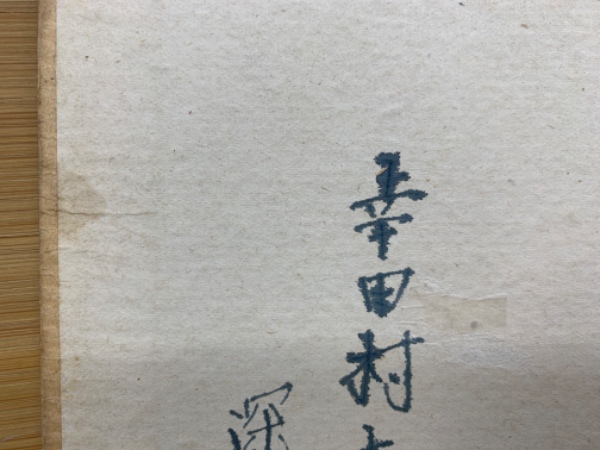 幸田村
深